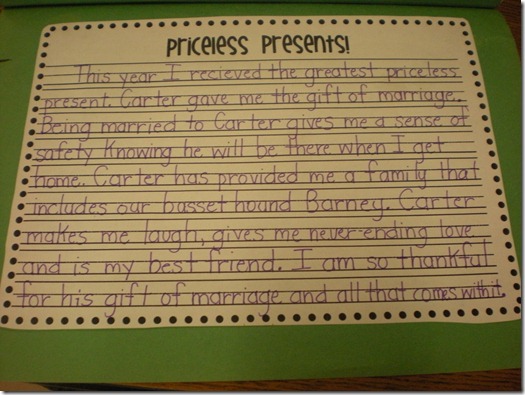 Priceless Presents!
This year I recieved the greatest priceless
present. Carter gave me the gift of marriage.
Being married to Carter gives me a sense of
safety knowing he will be there when I get
home. Carter has provided me a family that
includes our basset hound Barney. Carter
makes me laugh, gives me never-ending love
and is my best friend. I am so thankful
for his gift of marriage and all that comes with it.